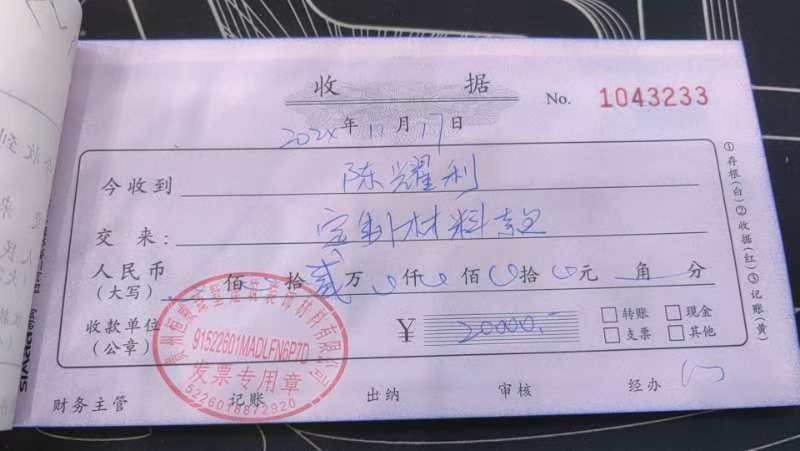 收 据
No. 1043233
2024年11月17日
今收到 陈耀利
交 来: 定制材料款
人民币(大写) 佰 拾 贰万 0仟 0佰 0拾 0元 角 分
收款单位(公章)
¥ 20000.-
□转账 □现金
□支票 □其他
91522601MADLFN6P7D
发票专用章
5226018872920
财务主管 记账 出纳 审核 经办
①存根(白)②收据(红)③记账(黄)